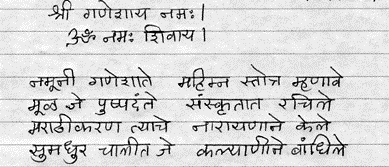 श्री गणेशाय नमः।
ॐ नमः शिवाय।
नमूनी गणेशाते महिम्न स्तोत्र म्हणावे
मूळ जे पुष्पदंते संस्कृतात रचिले
मराठीकरण त्याचे नारायणाने केले
सुमधुर चालीत जे कल्याणीने बांधिले